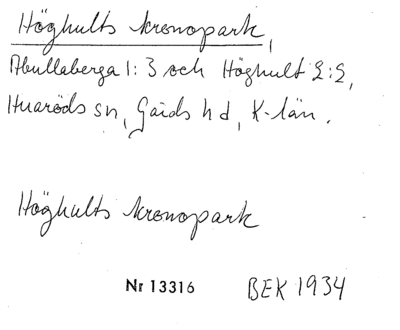 Höghults kronopark,
Abullaberga 1:3 och Höghult 2:2,
Huaröds sn, Gärds hd, K-län.
Höghults kronopark
Nr 13316 BEK 1934